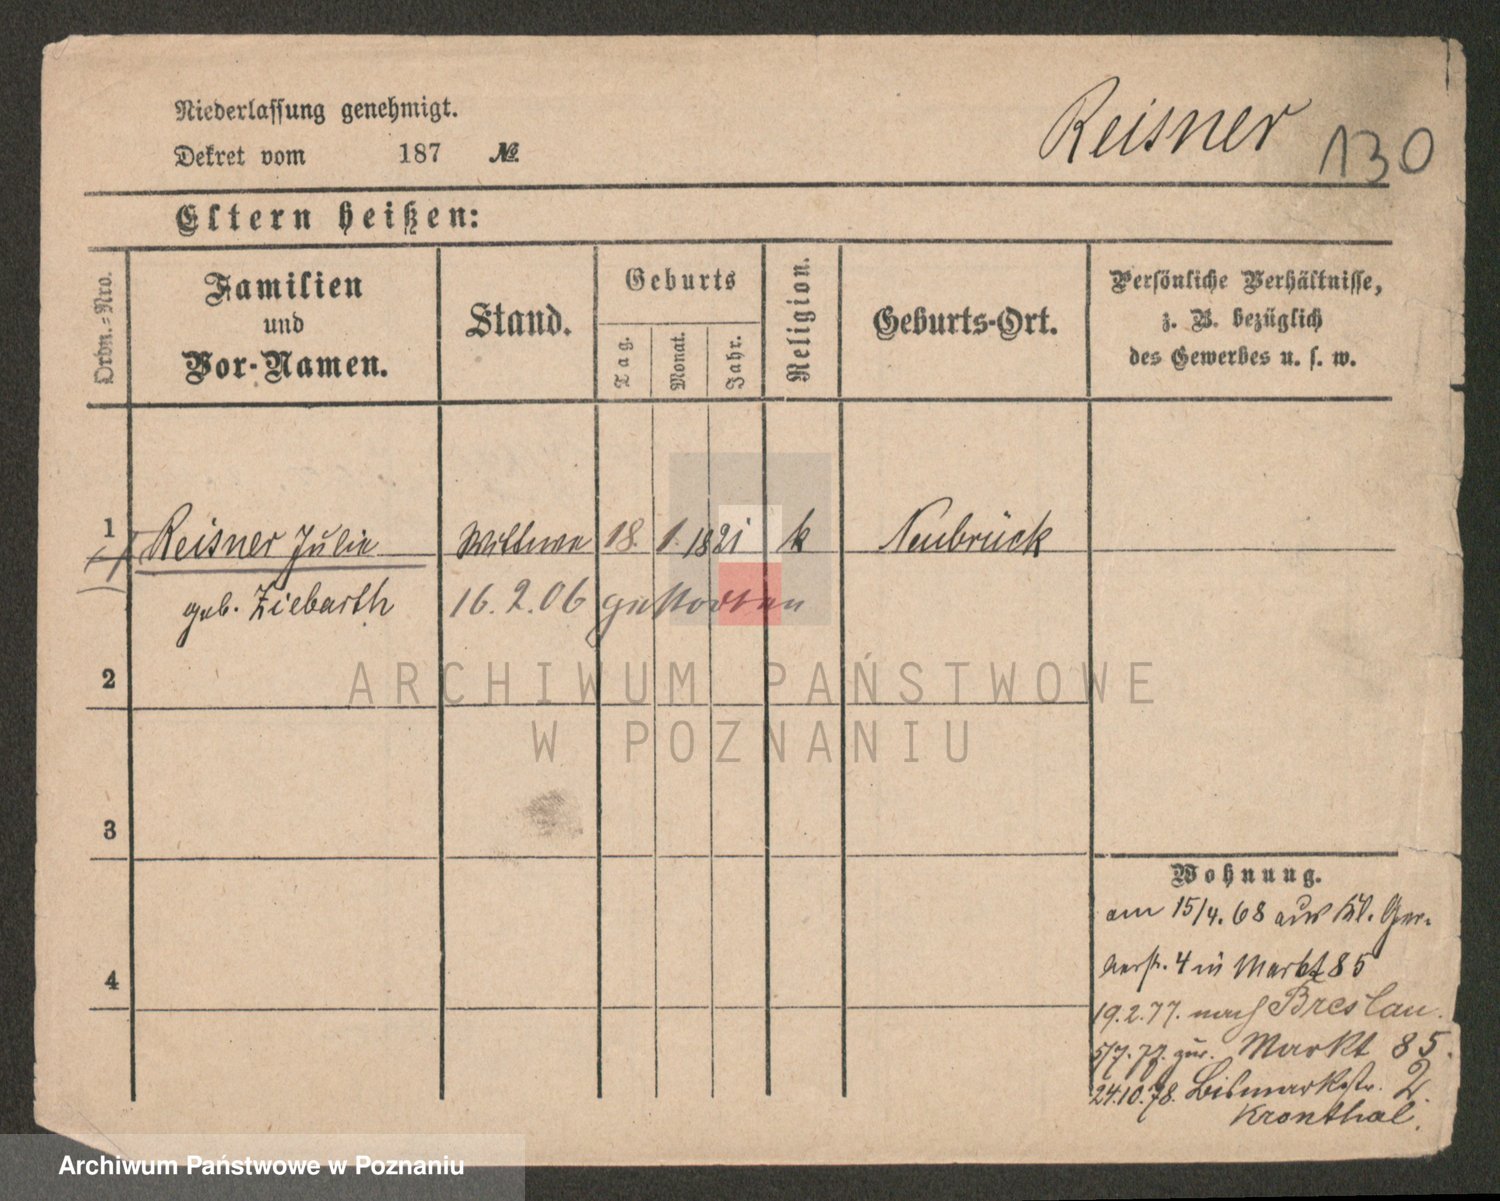 Niederlassung genehmigt.
Dekret vom 187 №
Reisner 130
Eltern heißen:
Ordn.-Nro.
Familien
und
Vor-Namen.
Stand.
Geburts
Tag.
Monat.
Jahr.
Religion.
Geburts-Ort.
Persönliche Verhältnisse,
z. B. bezüglich
des Gewerbes u. s. w.
1 Reisner Julie Wittwe 18. 1. 1821 k Neubrück
geb. Ziebarth 16.2.06 gestorben
2
ARCHIWUM PAŃSTWOWE
W POZNANIU
3
4
Wohnung.
am 15/4. 68 aus Kl. Ger-
berstr. 4 in Markt 85
19.2.77. nach Breslau.
5/7. 77. zur. Markt 85.
24.10.78. Bismarckstr. 2.
Kronthal.
Archiwum Państwowe w Poznaniu